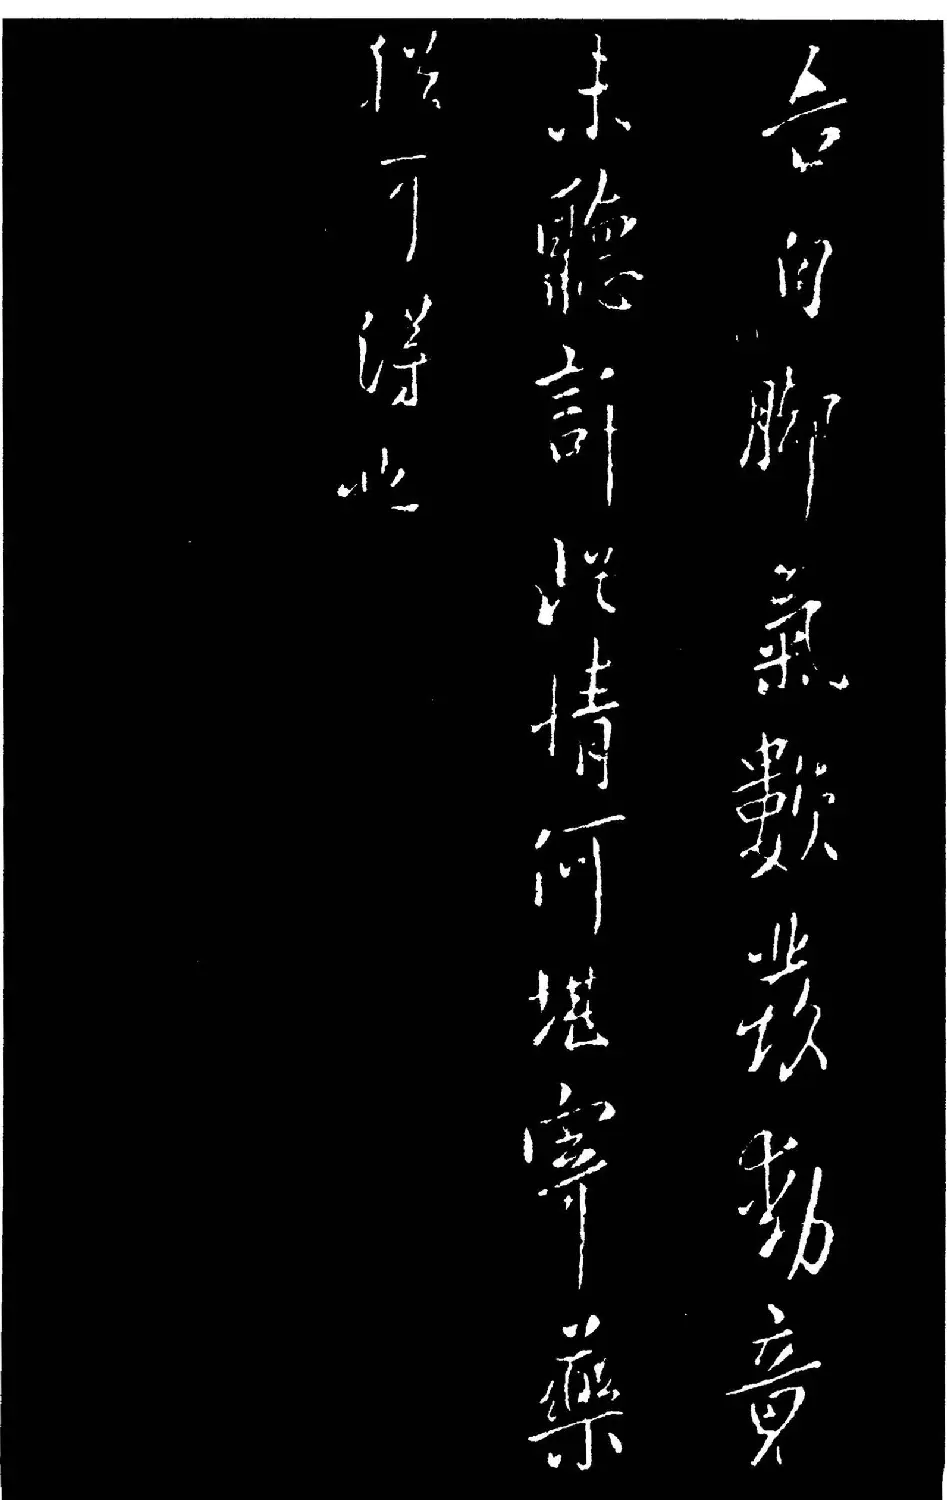 自脚氣數發動竟
未聽許此情何堪藥
可得也